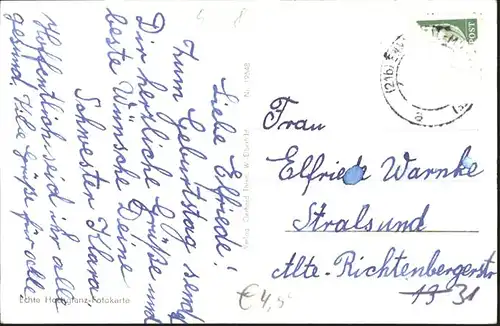 Liebe Elfriede!
Zum Geburtstag sendet
Dir herzliche Grüße und
beste Wünsche Deine
Schwester Klara.
Hoffentlich seid ihr alle
gesund. Viele Grüße für alle
Echte Hochglanz-Fotokarte
POST
(21b)
Frau
Elfriede Warnke
Stralsund
Alte-Richtenbergerstr
13 31
€ 4,5